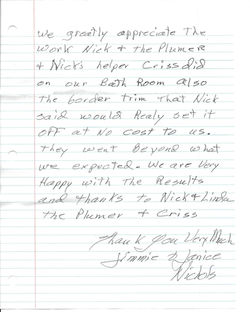 We greatly appreciate The
work Nick + the Plumer
+ Nick's helper Criss did
on our Bath Room also
the border trim That Nick
said would Realy set it
OFF at No cost to us.
They went Beyond what
we expected. We are Very
Happy with the Results
and thanks to Nick + Linda
the Plumer + Criss
Thank You Very Much
Jimmie & Janice
Nichols